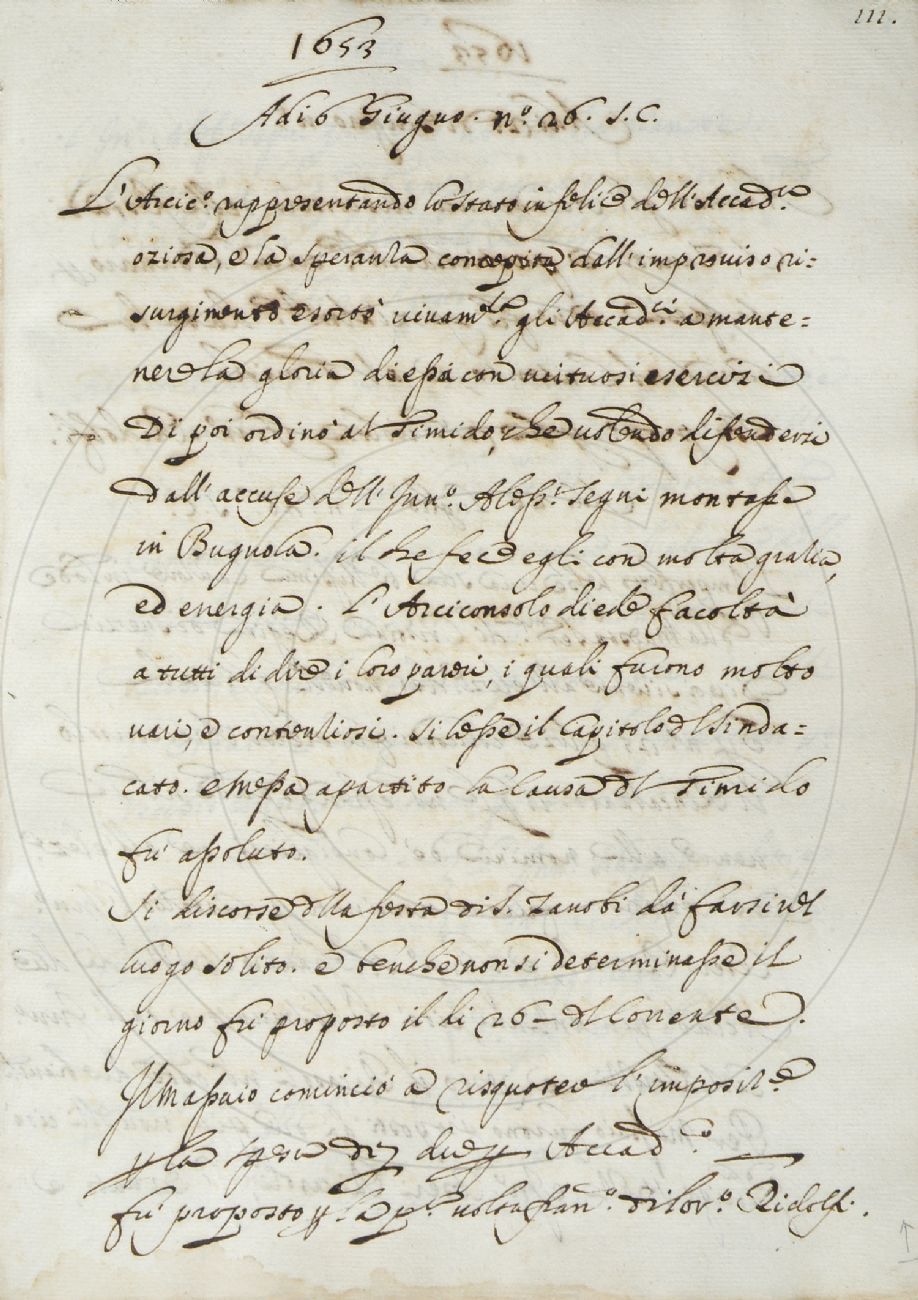 111.
1653
Adi 6 Giugno. n.º 26. S. C.
L'Arcic.º rappresentando lo stato infelice dell'Accad.
oziosa, e la speranza concepita dall'improviso ri=
surgimento esortò vivam.te gli Accad.ci a mante=
nere la gloria di essa con virtuosi esercizi
Di poi ordinò al Timido, che volendo difendersi
dall'accuse dell'Inn.º Aless.º Segni montasse
in Bugnola. il che fece egli con molta grazia,
ed energia. L'Arciconsolo diede facoltà
a tutti di dire i loro pareri, i quali furono molto
vari, e contenziosi. Si lesse il Capitolo del Sinda=
cato. e messa a partito la causa del Timido
fu assoluto.
Si discorse della festa di S. Zanobi da farsi nel
luogo solito. e benche non si determinasse il
giorno fu proposto il di 26 – del Corrente.
Il Massaio cominciò a risquoter l'imposit.e
la spesa Accad.
fu proposto la p.a volta di Lor.º Ridolfi.